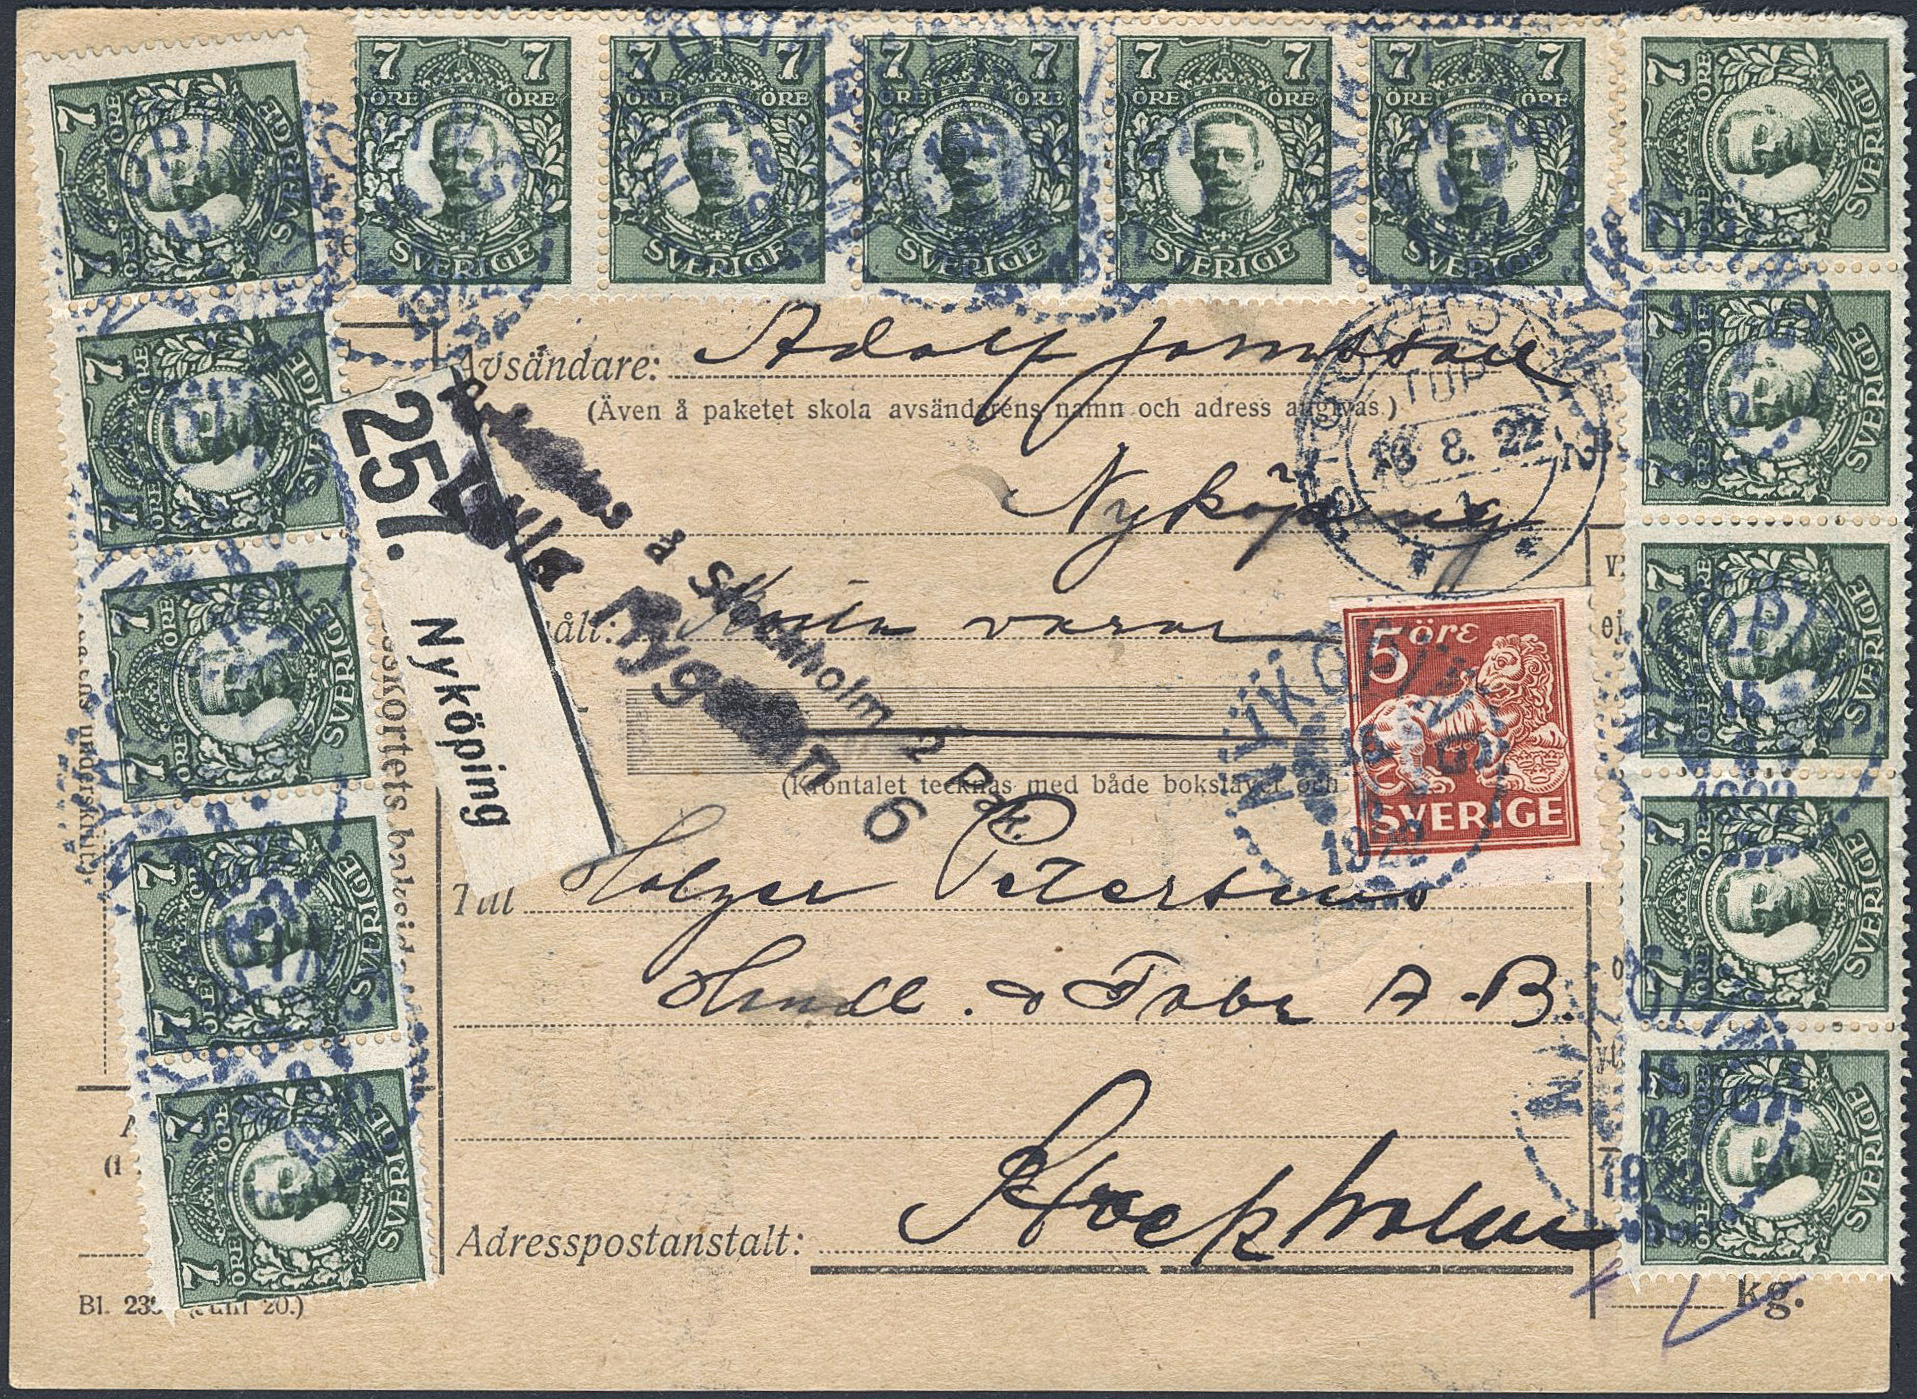 7 7
ÖRE ÖRE
SVERIGE
7 7
ÖRE ÖRE
SVERIGE
7 7
ÖRE ÖRE
SVERIGE
7 7
ÖRE ÖRE
SVERIGE
7 7
ÖRE ÖRE
SVERIGE
7 7
ÖRE ÖRE
SVERIGE
7 7
ÖRE ÖRE
SVERIGE
7 7
ÖRE ÖRE
SVERIGE
7 7
ÖRE ÖRE
SVERIGE
7 7
ÖRE ÖRE
SVERIGE
7 7
ÖRE ÖRE
SVERIGE
7 7
ÖRE ÖRE
SVERIGE
7 7
ÖRE ÖRE
SVERIGE
7 7
ÖRE ÖRE
SVERIGE
7 7
ÖRE ÖRE
SVERIGE
Avsändare: Adolf
(Även å paketet skola avsändarens namn och adress angivas.)
Nyköping
16 8. 22
257. Nyköping
å Stockholm 2 Pk.
6
varor
5 öre
SVERIGE
NYKÖPING
1922
(Krontalet tecknas med både bokstäver och
Till Holger Petersens
Handl. & Fabr A-B.
Stockholm
Adresspostanstalt:
Bl. 239 (Juni 20.)
kg.